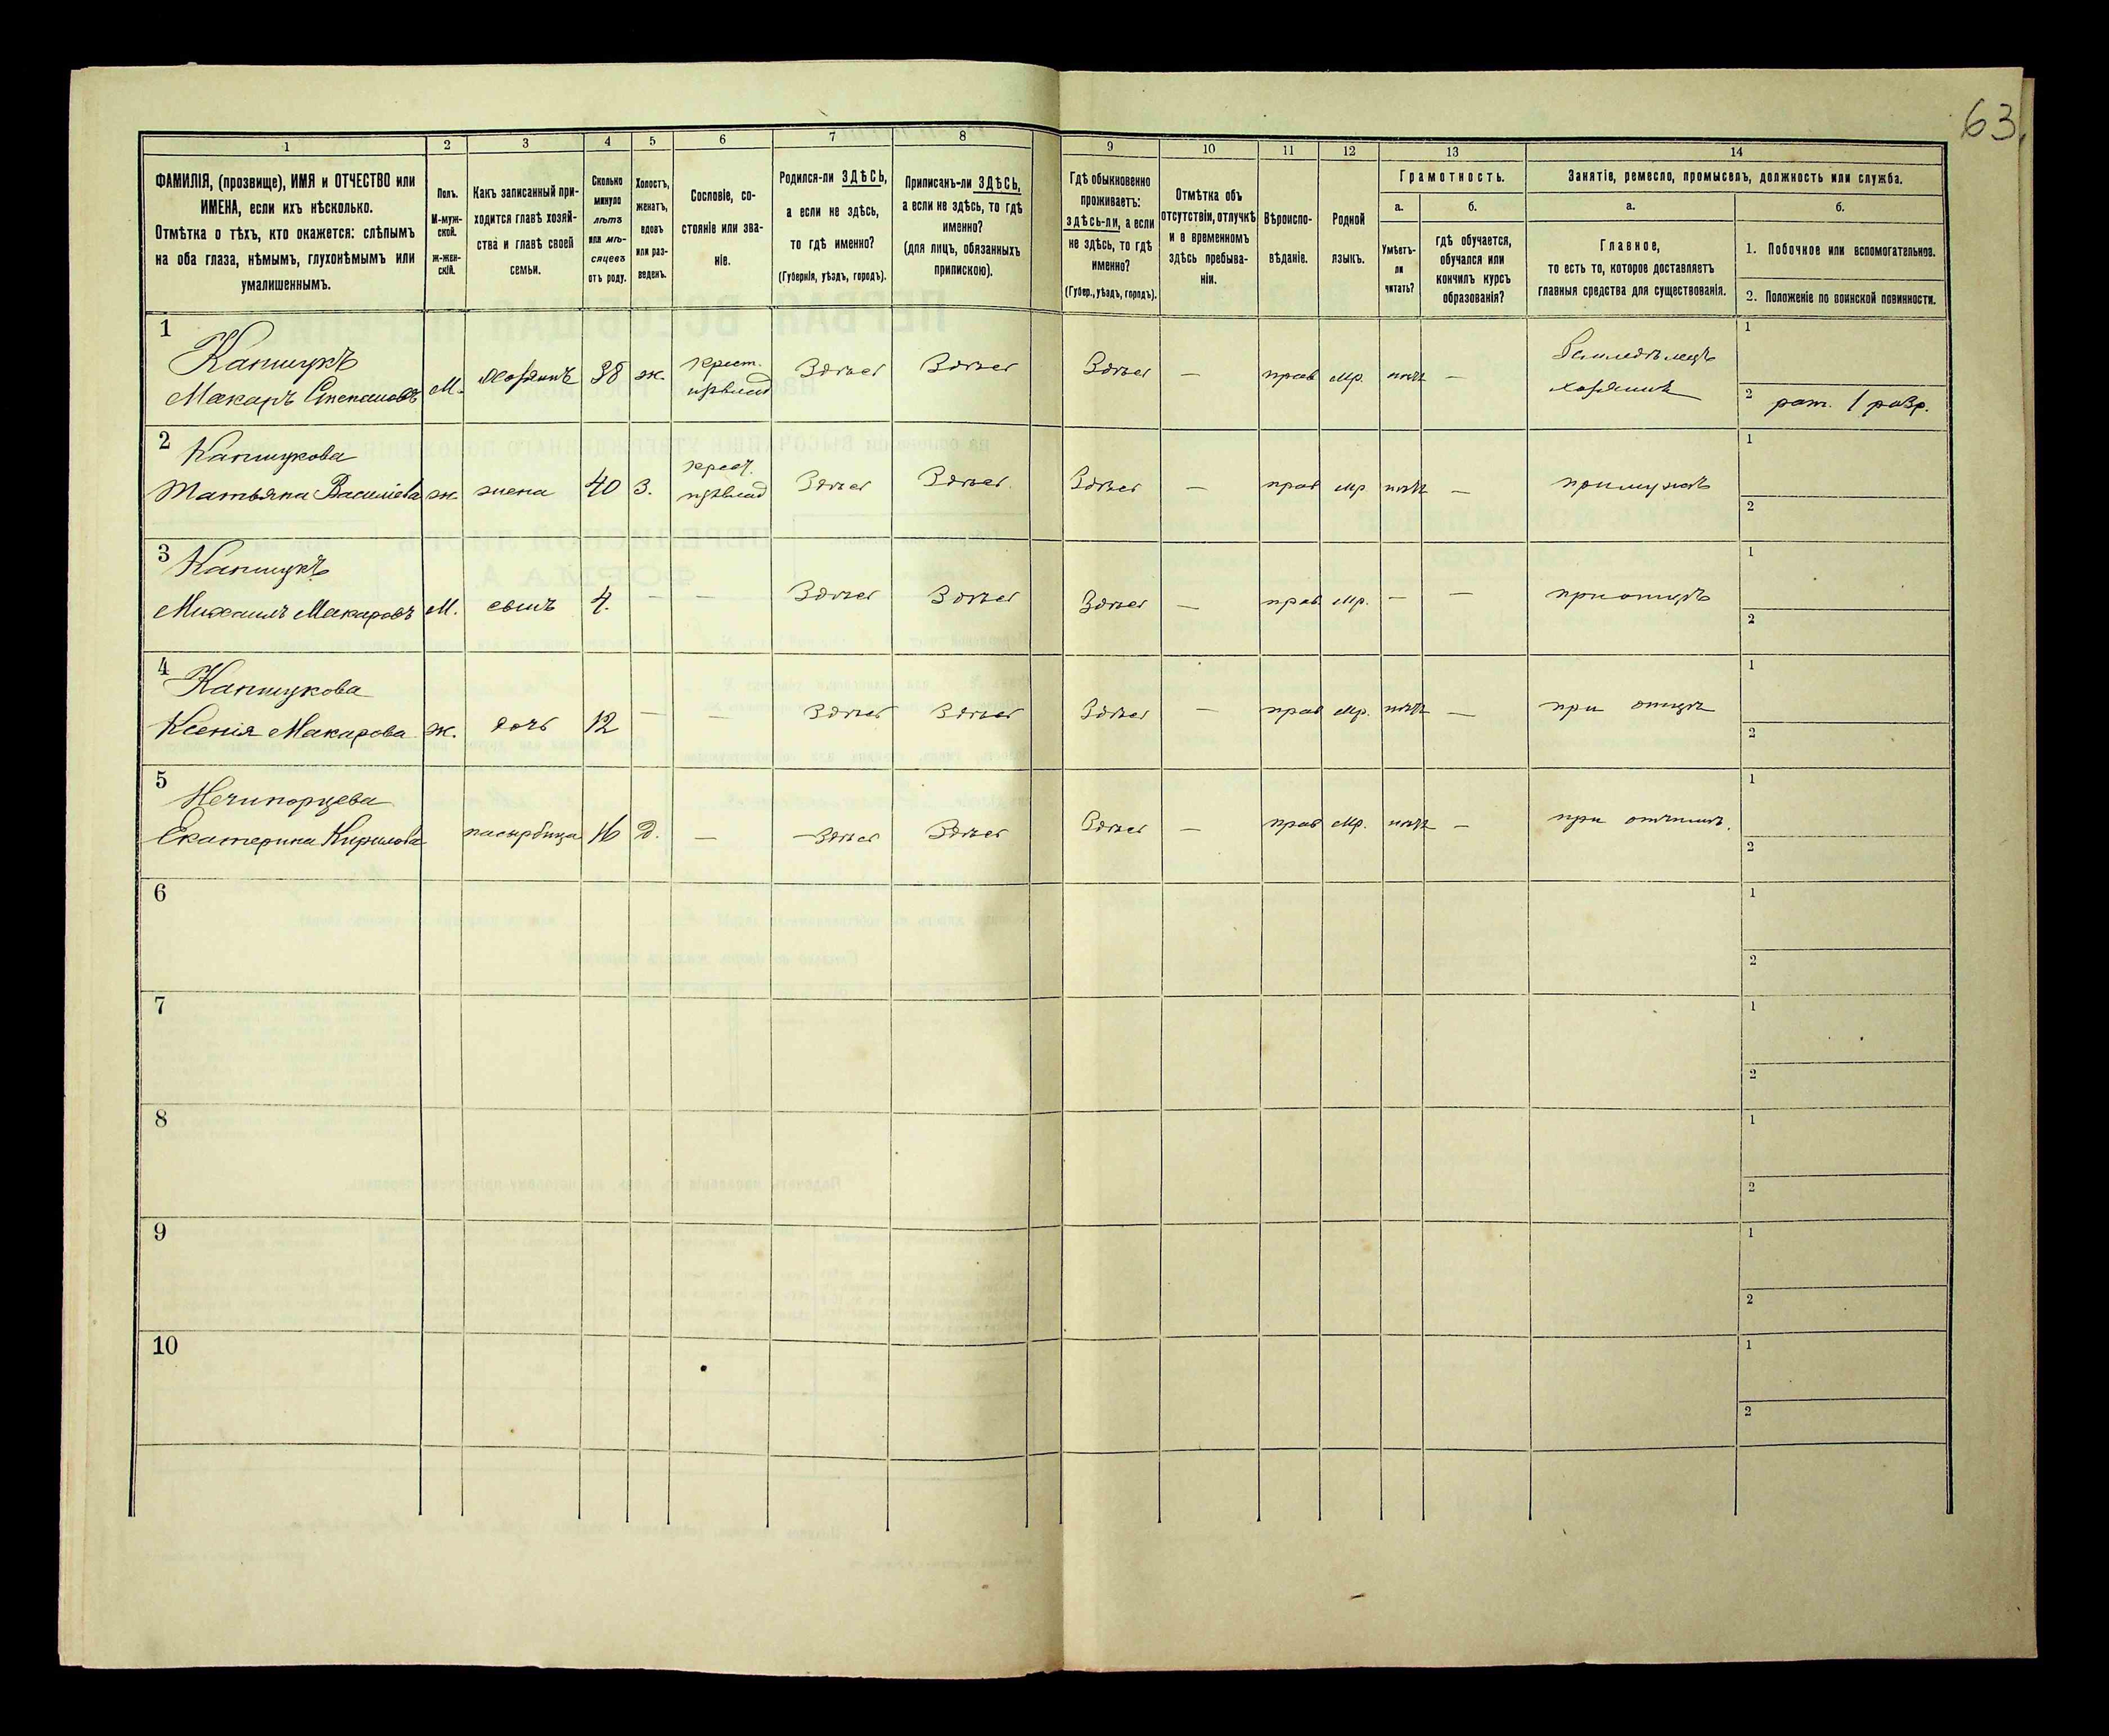 63.
1
2
3
4
5
6
7
8
9
10
11
12
13
14
ФАМИЛІЯ, (прозвище), ИМЯ и ОТЧЕСТВО или
ИМЕНА, если ихъ нѣсколько.
Отмѣтка о тѣхъ, кто окажется: слѣпымъ
на оба глаза, нѣмымъ, глухонѣмымъ или
умалишеннымъ.
Полъ.
М-муж-
ской.
Ж-жен-
скій.
Какъ записанный при-
ходится главѣ хозяй-
ства и главѣ своей
семьи.
Сколько
минуло
лѣтъ
или мѣ-
сяцевъ
отъ роду.
Холостъ,
женатъ,
вдовъ
или раз-
веденъ.
Сословіе, со-
стояніе или зва-
ніе.
Родился-ли ЗДѢСЬ,
а если не здѣсь,
то гдѣ именно?
(Губернія, уѣздъ, городъ).
Приписанъ-ли ЗДѢСЬ,
а если не здѣсь, то гдѣ
именно?
(для лицъ, обязанныхъ
припискою).
Гдѣ обыкновенно
проживаетъ:
здѣсь-ли, а если
не здѣсь, то гдѣ
именно?
(Губер., уѣздъ, городъ).
Отмѣтка объ
отсутствіи, отлучкѣ
и о временномъ
здѣсь пребыва-
ніи.
Вѣроиспо-
вѣданіе.
Родной
языкъ.
Грамотность.
а.
Умѣетъ-
ли
читать?
б.
гдѣ обучается,
обучался или
кончилъ курсъ
образованія?
Занятіе, ремесло, промыселъ, должность или служба.
а.
Главное,
то есть то, которое доставляетъ
главныя средства для существованія.
б.
1. Побочное или вспомогательное.
2. Положеніе по воинской повинности.
1
Капшукъ
Макаръ Степановъ М. хозяинъ 38 ж. крест. Здѣсь Здѣсь Здѣсь — прав мр. нѣтъ — Земледѣлецъ
хозяинъ
1
2 рат. 1 разр.
2
Капшукова
Татьяна Василіева ж. жена 40 З. крест. Здѣсь Здѣсь. Здѣсь — прав мр нѣтъ — при мужѣ
1
2
3
Капшукъ
Михаилъ Макаровъ М. сынъ 4. — — Здѣсь Здѣсь Здѣсь — прав мр. — — при отцѣ
1
2
4
Капшукова
Ксенія Макарова ж. дочь 12 — — Здѣсь Здѣсь Здѣсь — прав мр. нѣтъ — при отцѣ
1
2
5
Нечипорцева
Екатерина Кирилова падчерица 16 Д. — — Здѣсь Здѣсь Здѣсь — прав мр. нѣтъ — при отчимѣ.
1
2
6
1
2
7
1
2
8
1
2
9
1
2
10
1
2